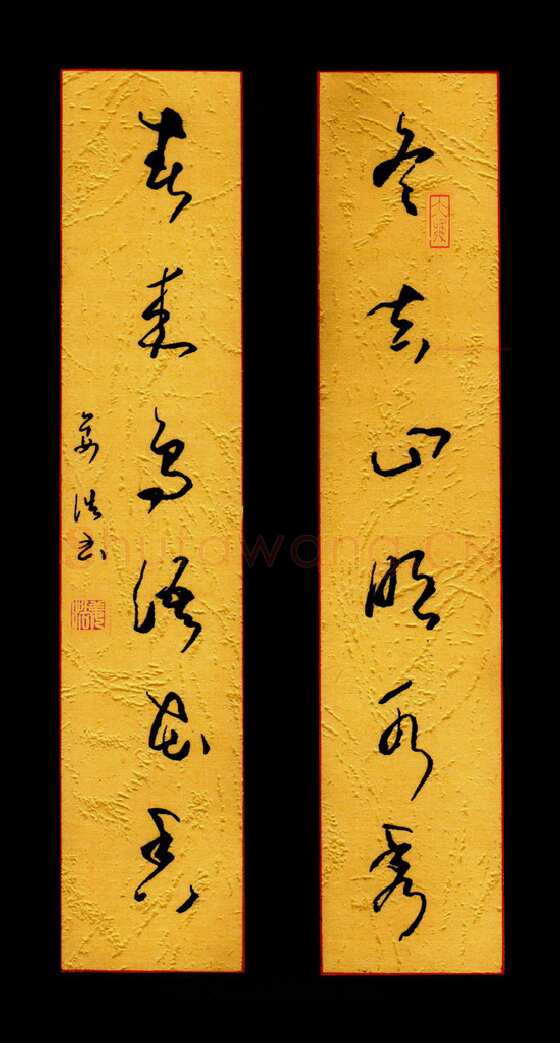 冬去山明水秀
春来鸟语花香
姜浩书
姜浩
Shufawang.cn